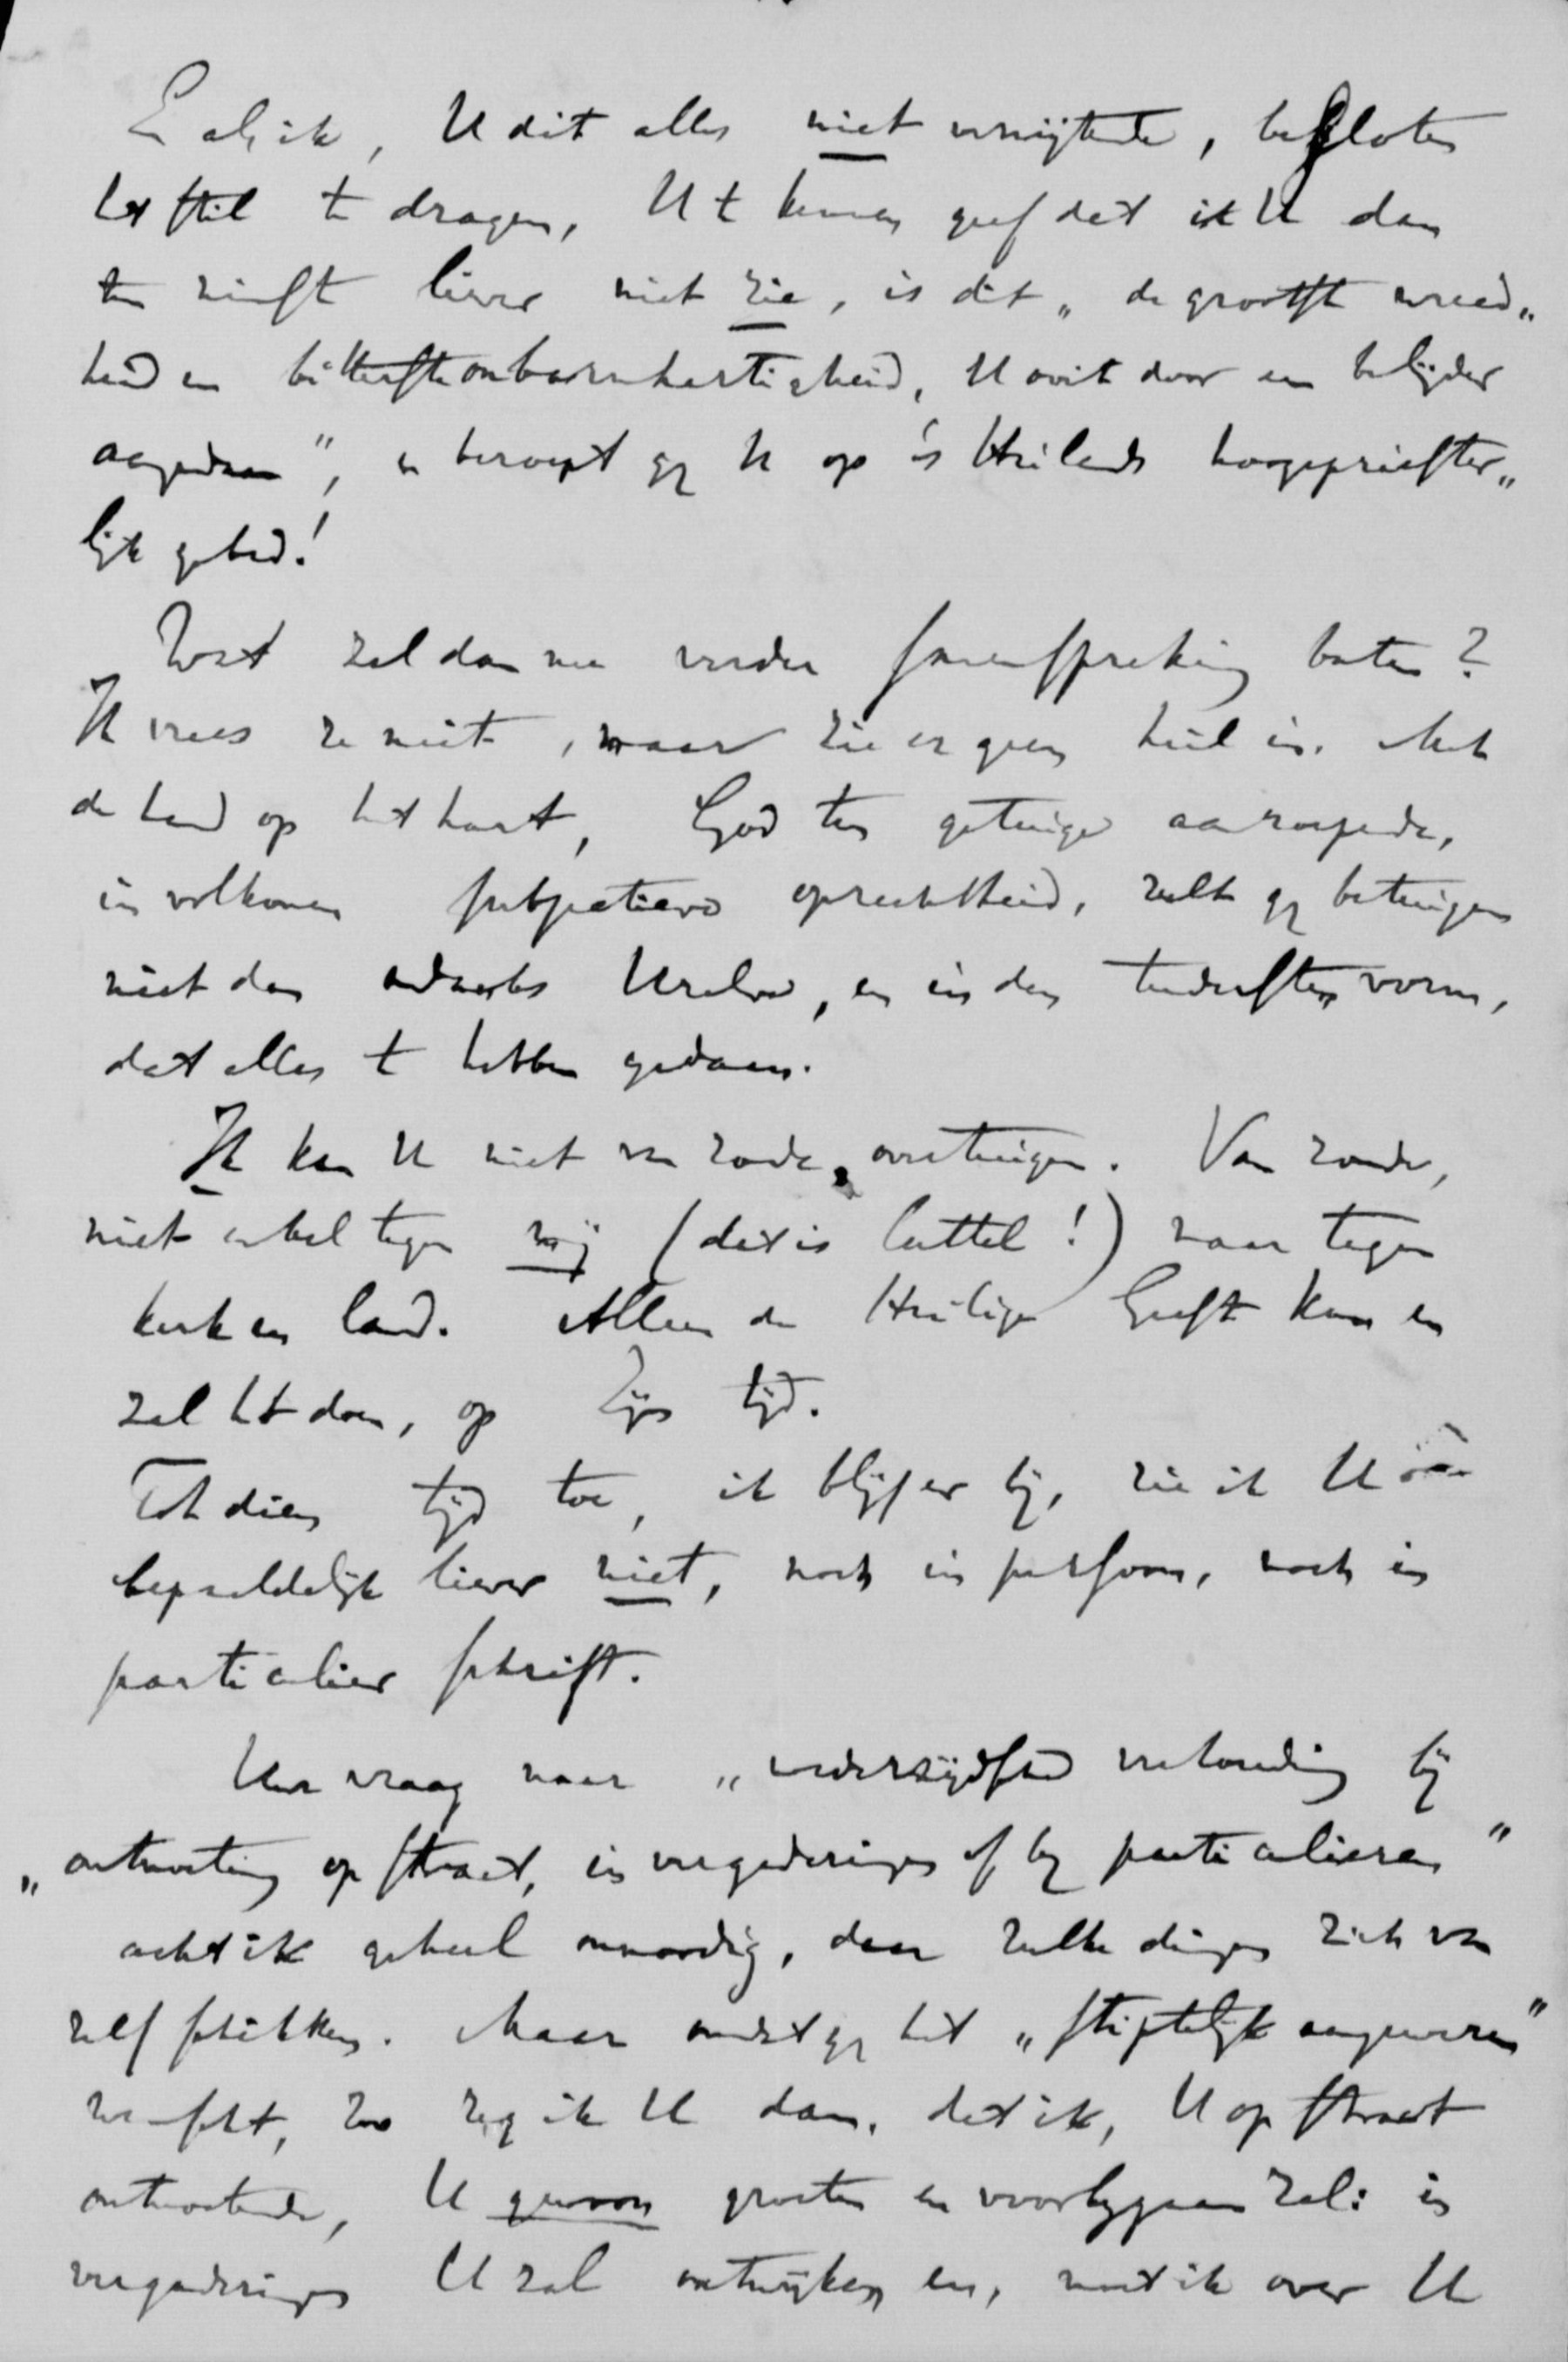 En als ik, U dit alles niet verwijtende, besloten
het stil te dragen, U te kennen geef dat ik U dan
ten minste liever niet zie, is dit „de grootste wreed„
heid en bitterste onbarmhartigheid, U ooit door een belijder
aangedaan”, en beroept gij U op 's Heilands hoogepriester„
lijk gebed!
Wat zal dan nu verder samenspreking baten?
Ik vrees ze niet, maar zie er geen heil in. Met
de hand op het hart, God ten getuige aanroepende,
in volkomen subjectieve oprechtheid, zult gij betuigen
niet dan andwerks Uzelve, en in den teedersten vorm,
dat alles te hebben gedaan.
Ik kan U niet van zonde overtuigen. Van zonde,
niet enkel tegen mij (dat is luttel!) maar tegen
kerk en land. Alleen de Heilige Geest kan en
zal het doen, op Zijn tijd.
Tot dien tijd toe, ik blijf er bij, zie ik U
bepaaldelijk liever niet, noch in persoon, noch in
particulier schrift.
Uw vraag naar „wederzijdsche verhouding bij
„ontmoeting op straat, in vergaderingen of bij particulieren”
acht ik geheel onnoodig, daar zulke dingen zich van
zelf schikken. Maar omdat gij het „stiptelijk aangewezen”
wenscht, zoo zeg ik U dan, dat ik, U op straat
ontmoetende, U gewoon groeten en voorbijgaan zal: in
vergaderingen U zal ontwijken en, moet ik over U